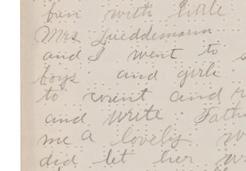 fun with little
Mrs Lueddemann
and I went to s
boys and girls
to count and r
and write Fath
me a lovely w
did let her w